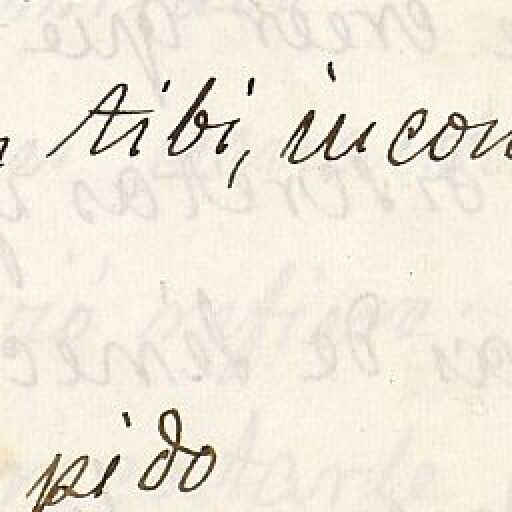 tibi, incon
pido